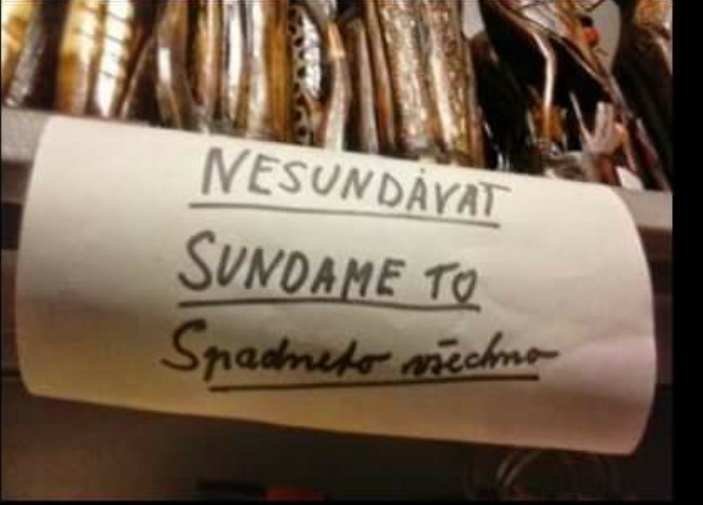 NESUNDÁVAT
SUNDAME TO
Spadneto všechno